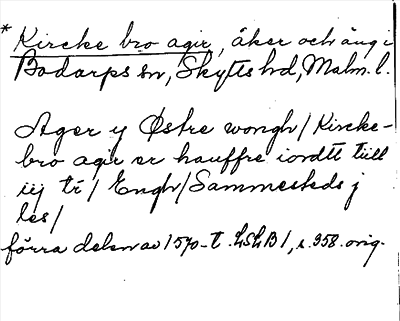 * Kircke bro agir, åker och äng i
Bodarps sn, Skytts hd, Malm. l.
Ager y Østre wongh / Kircke-
bro agir er hauffre iordtt tiill
iij tí / Engh / Sammesteds j
les /
förra delen av 1570-t. LSLB 1, s. 958. orig.